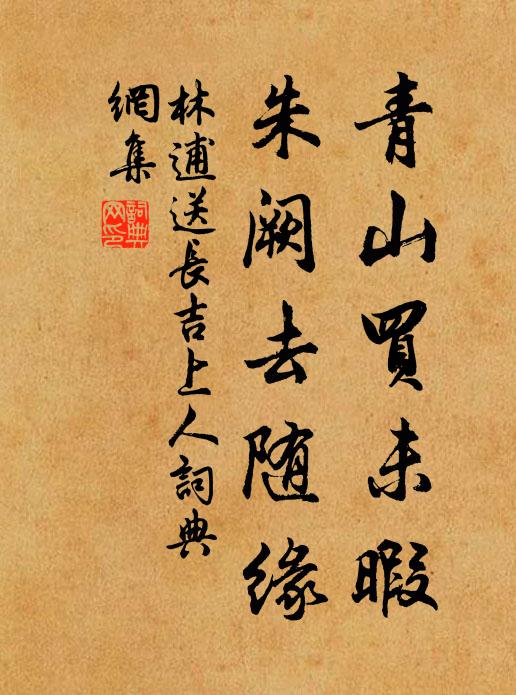 青山買未暇
朱阙去随緣
林逋送長吉上人詞典
網集
詞典